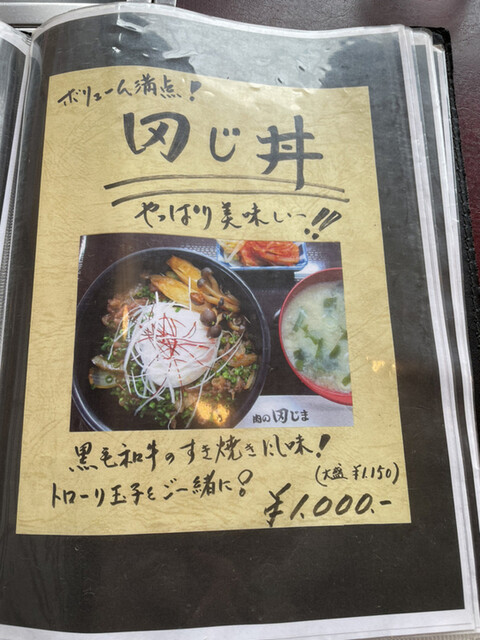 ボリューム満点!
田じ丼
やっぱり美味しい!!
肉の田じま
黒毛和牛のすき焼きにし味!
(大盛 ¥1.150)
トローリ玉子とご一緒に?
¥1,000.-